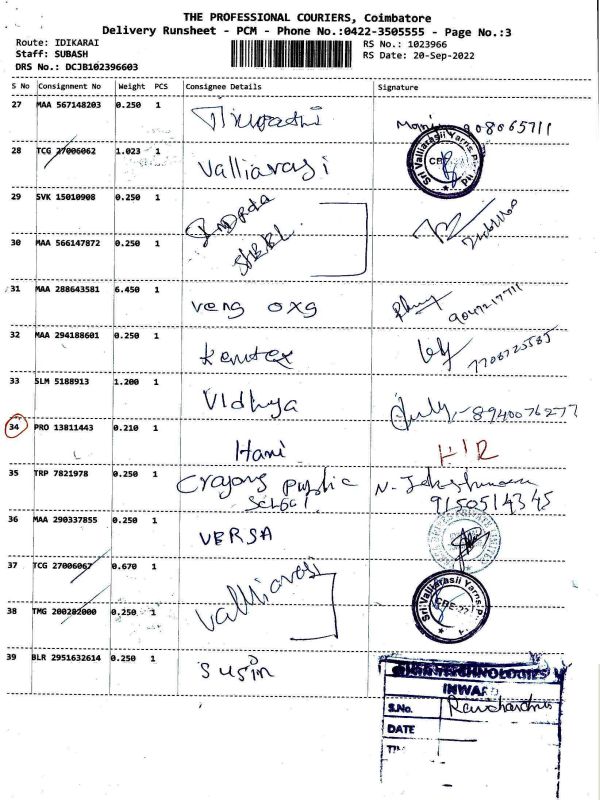 THE PROFESSIONAL COURIERS, Coimbatore
Delivery Runsheet - PCM - Phone No.:0422-3505555 - Page No.:3
Route: IDIKARAI
Staff: SUBASH
DRS No.: DCJB102396603
RS No.: 1023966
RS Date: 20-Sep-2022
S No Consignment No Weight PCS Consignee Details Signature
27 MAA 567148203 0.250 1
908065711
28 TCG 27006062 1.023 1 Valliarasi
Sri Valliarasii Yarns P
29 SVK 15010908 0.250 1
30 MAA 566147872 0.250 1
31 MAA 288643581 6.450 1 veng oxg
9047217711
32 MAA 294188601 0.250 1 Kemtex
33 SLM 5188913 1.200 1 Vidhya
8940076277
34 PRO 13811443 0.210 1 Hami
35 TRP 7821978 0.250 1 Crayons Public School
9150514345
36 MAA 290337855 0.250 1 VERSA
37 TCG 27006067 0.670 1
Valliarasi
Sri Valliarasii Yarns P
38 TMG 200282000 0.250 1
39 BLR 2951632614 0.250 1 Susin
TECHNOLOGIES
INWARD
S.No.
DATE